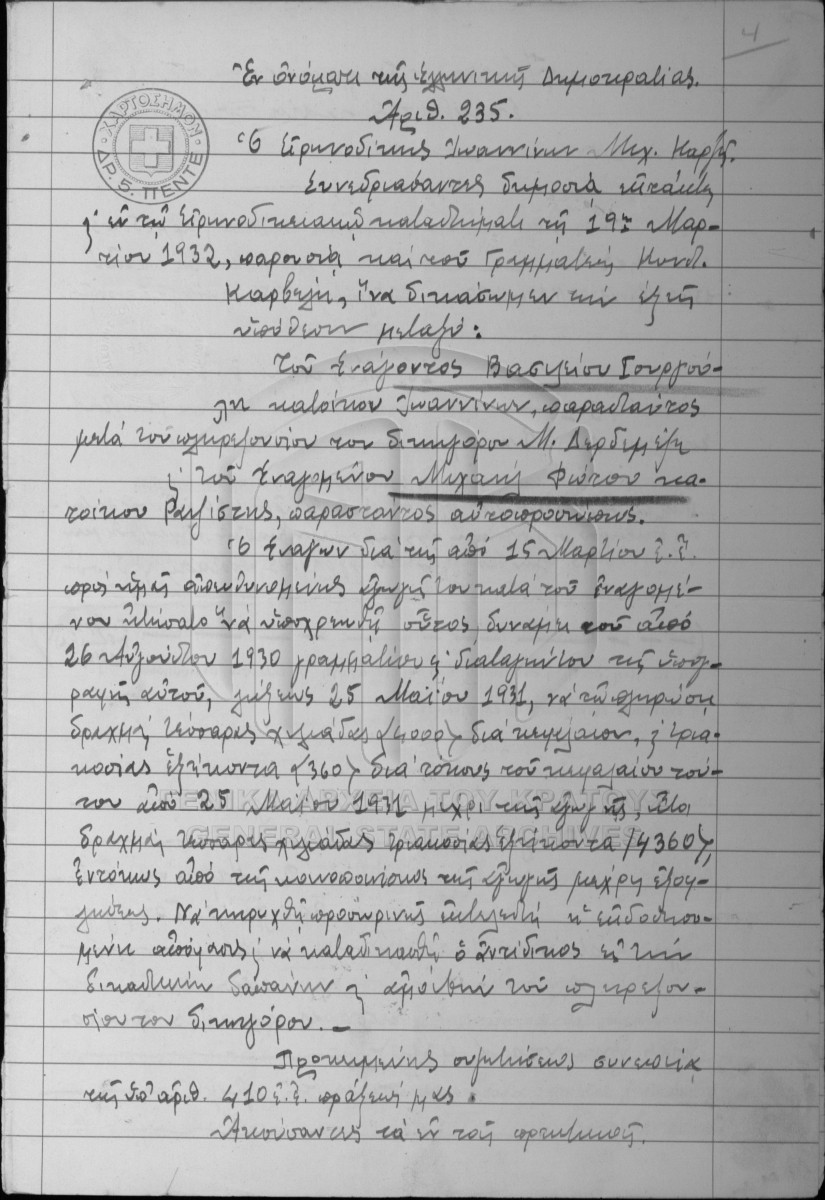 4
Ἐν ὀνόματι τῆς Ἑλληνικῆς Δημοκρατίας.
Ἀριθ. 235.
ΧΑΡΤΟΣΗΜΟΝ
ΔΡ. 5. ΠΕΝΤΕ
Ὁ Εἰρηνοδίκης Ἰωαννίνων Μιχ.
Συνεδριάσαντες δημοσίᾳ
ἐν τῷ Εἰρηνοδικειακῷ καταστήματι τῇ 19ῃ Μαρ-
τίου 1932, παρουσίᾳ καὶ τοῦ Γραμματέως Κωνσ.
Καρβέλη, ἵνα δικάσωμεν τὴν ἑξῆς
ὑπόθεσιν μεταξύ:
Τοῦ ἐνάγοντος Βασιλείου Γουργού-
λη κατοίκου Ἰωαννίνων, παραστάντος
μετὰ τοῦ πληρεξουσίου του δικηγόρου Μ.
τοῦ ἐναγομένου Μιχαὴλ Φώτου κα-
τοίκου παραστάντος αὐτοπροσώπως.
Ὁ ἐνάγων διὰ τῆς ἀπὸ 15 Μαρτίου ἐ.ἔ.
πρὸς ἡμᾶς ἀπευθυνομένης ἀγωγῆς του κατὰ τοῦ ἐναγομέ-
νου ᾐτήσατο ἵνα ὑποχρεωθῇ οὗτος, δυνάμει τοῦ ἀπὸ
26 Αὐγούστου 1930 γραμματίου διαταγήν του τῆς ὑπογ-
ραφῆς αὐτοῦ, λήξεως 25 Μαΐου 1931, νὰ τῷ πληρώσῃ
δραχμὰς τέσσαρας χιλιάδας (4000) διὰ κεφάλαιον, τρια-
κοσίας ἑξήκοντα (360) διὰ τόκους τοῦ κεφαλαίου τού-
του ἀπὸ 25 Μαΐου 1931 μέχρι τῆς ἀγωγῆς, ἤτοι
δραχμὰς τέσσαρας χιλιάδας τριακοσίας ἑξήκοντα (4360),
ἐντόκως ἀπὸ τῆς κοινοποιήσεως τῆς ἀγωγῆς μέχρις ἐξοφ-
λήσεως. Νὰ κηρυχθῇ προσωρινῶς ἐκτελεστὴ ἡ ἐκδοθησο-
μένη ἀπόφασις νὰ καταδικασθῇ ὁ ἀντίδικος εἰς τὴν
δικαστικὴν δαπάνην ἀμοιβὴν τοῦ πληρεξου-
σίου του δικηγόρου.—
Προκειμένης συζητήσεως συνεπείᾳ
τῆς ὑπ' ἀριθ. 410 ἐ.ἔ. πράξεώς μας.
Ἀκούσαντες τὰ ἐν τοῖς πρακτικοῖς.
ΓΕΝΙΚΑ ΑΡΧΕΙΑ ΤΟΥ ΚΡΑΤΟΥΣ
GENERAL STATE ARCHIVES